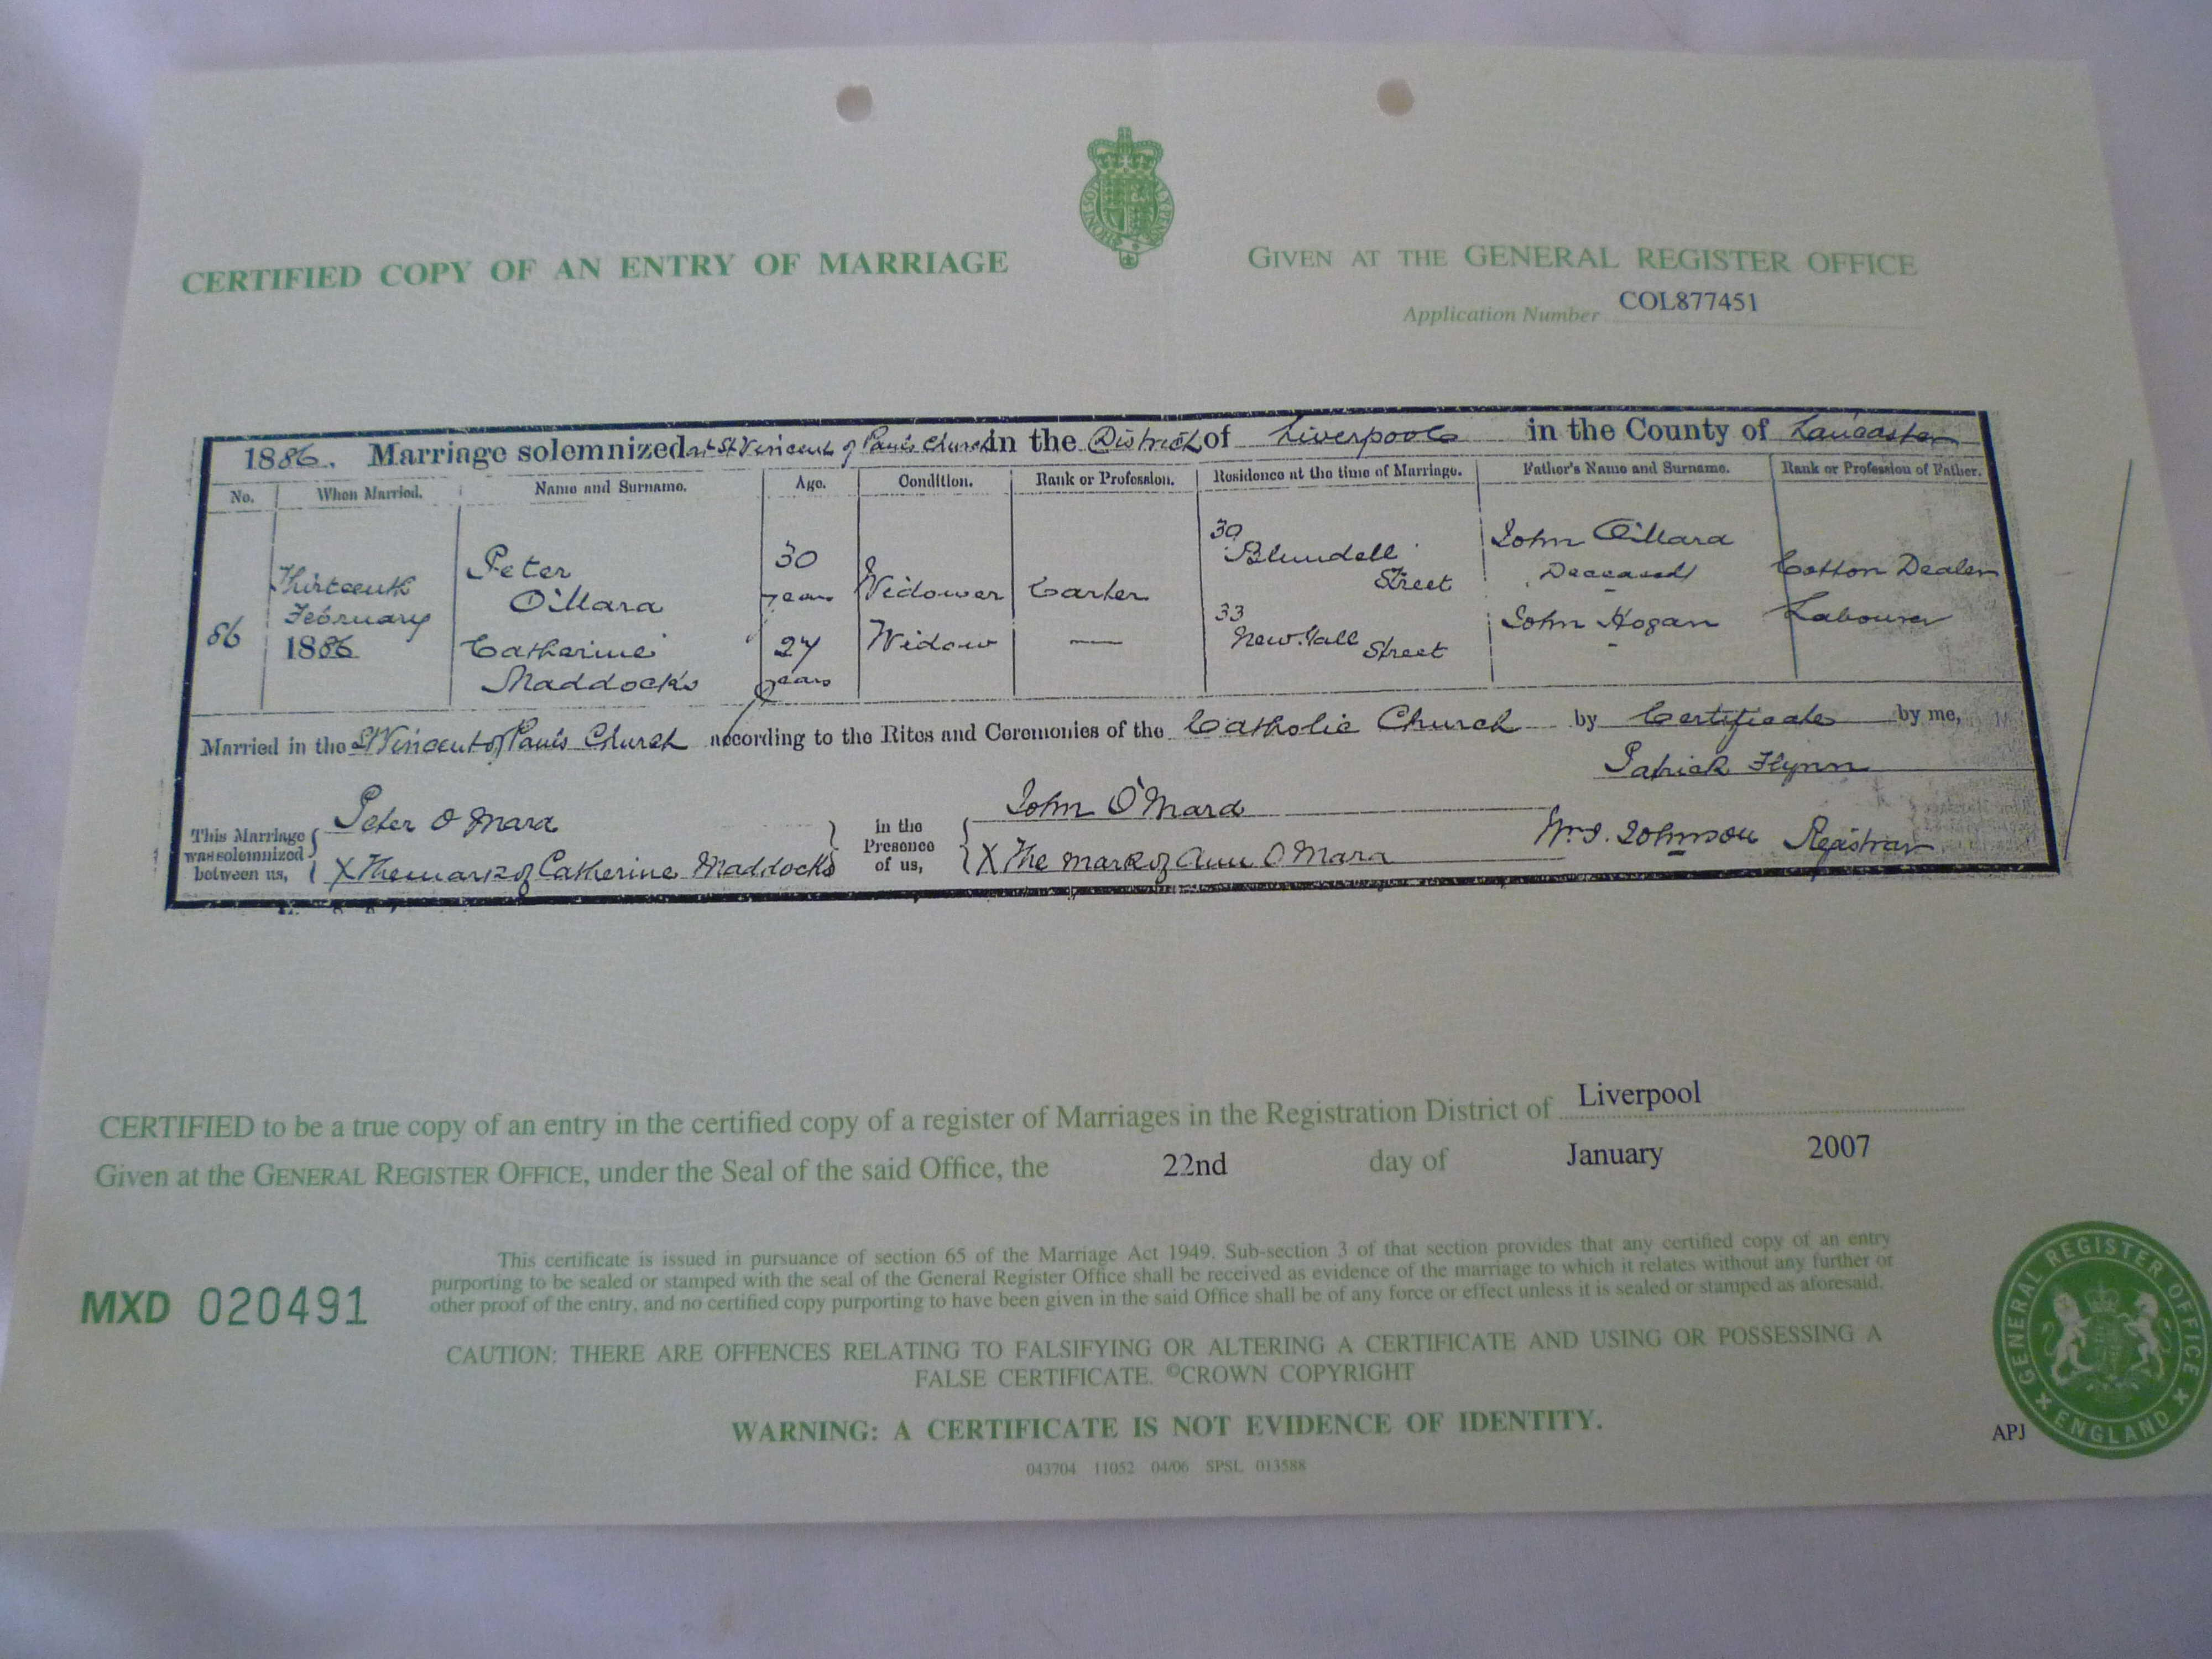 CERTIFIED COPY OF AN ENTRY OF MARRIAGE
GIVEN AT THE GENERAL REGISTER OFFICE
Application Number COL877451
1886. Marriage solemnized at St Vincent of Paul's Church in the District of Liverpool in the County of Lancaster
No. When Married. Name and Surname. Age. Condition. Rank or Profession. Residence at the time of Marriage. Father's Name and Surname. Rank or Profession of Father.
86 Thirteenth February 1886
Peter O'Mara 30 years Widower Carter 30 Blundell Street John O'Mara Deceased Cotton Dealer
Catherine Maddocks 27 years Widow — 33 New Hall Street John Hogan Labourer
Married in the St Vincent of Paul's Church according to the Rites and Ceremonies of the Catholic Church by Certificate by me,
Patrick Flynn
This Marriage was solemnized between us, Peter O Mara
X The mark of Catherine Maddocks
in the Presence of us, John O'Mara
X The mark of Ann O Mara
Wm. J. Johnson Registrar
CERTIFIED to be a true copy of an entry in the certified copy of a register of Marriages in the Registration District of Liverpool
Given at the GENERAL REGISTER OFFICE, under the Seal of the said Office, the 22nd day of January 2007
This certificate is issued in pursuance of section 65 of the Marriage Act 1949. Sub-section 3 of that section provides that any certified copy of an entry
purporting to be sealed or stamped with the seal of the General Register Office shall be received as evidence of the marriage to which it relates without any further or
other proof of the entry, and no certified copy purporting to have been given in the said Office shall be of any force or effect unless it is sealed or stamped as aforesaid.
MXD 020491
CAUTION: THERE ARE OFFENCES RELATING TO FALSIFYING OR ALTERING A CERTIFICATE AND USING OR POSSESSING A
FALSE CERTIFICATE. ©CROWN COPYRIGHT
WARNING: A CERTIFICATE IS NOT EVIDENCE OF IDENTITY.
043704 11052 04/06 SPSL 013588
APJ
GENERAL REGISTER OFFICE
ENGLAND